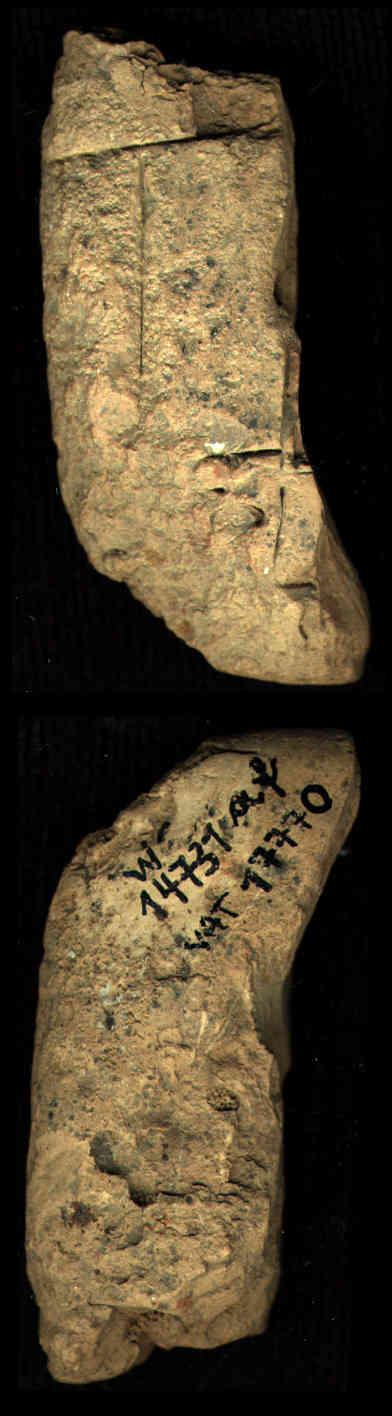 W
14731 af
VAT 17770